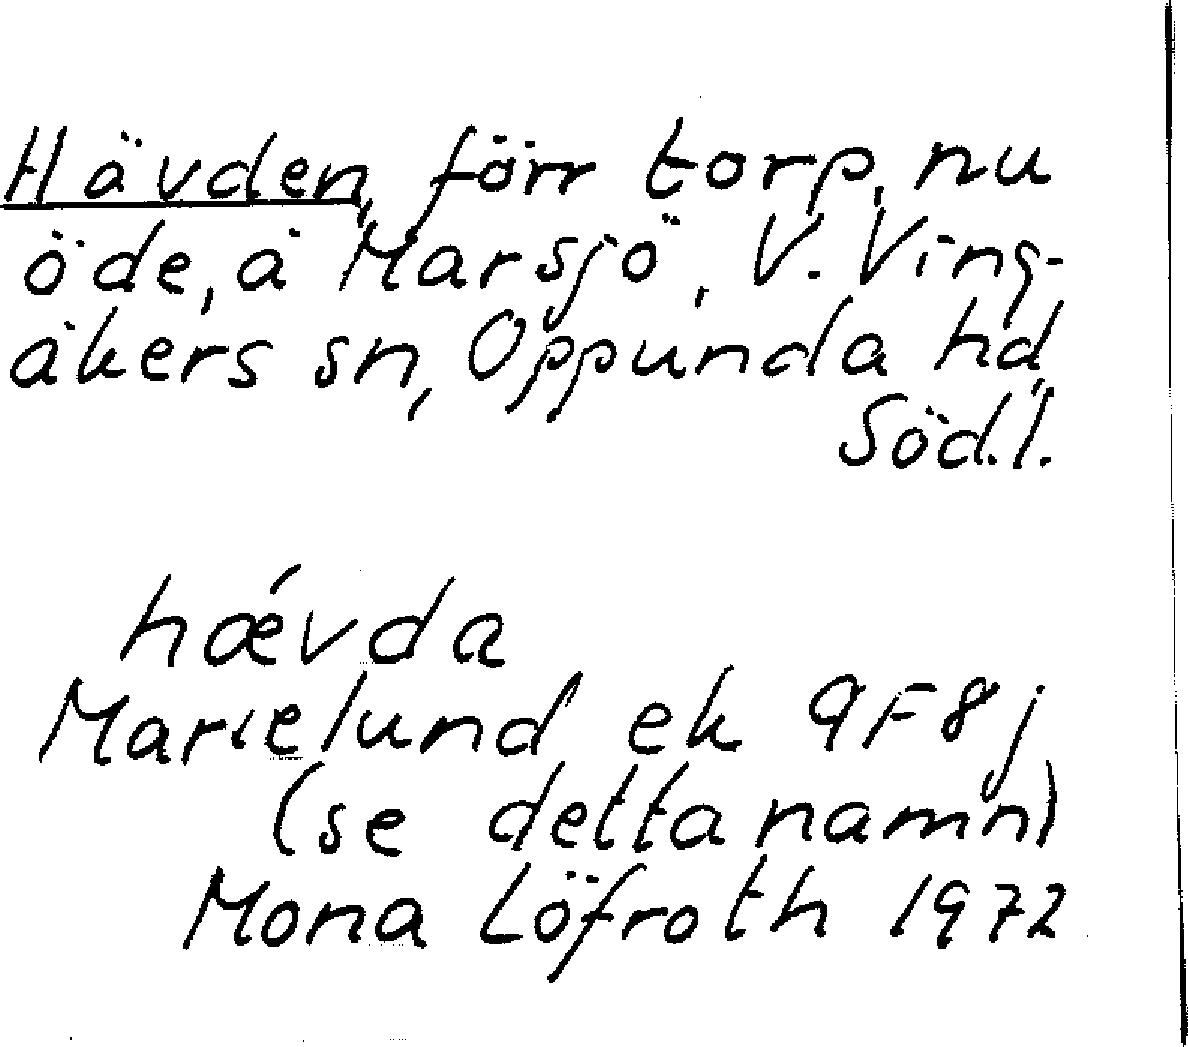 Hävden, förr torp, nu
öde, å Marsjö, V. Ving-
åkers sn, Oppunda hd,
Söd.l.
hǽvda
Marielund ek 9F8j
(se detta namn)
Mona Löfroth 1972